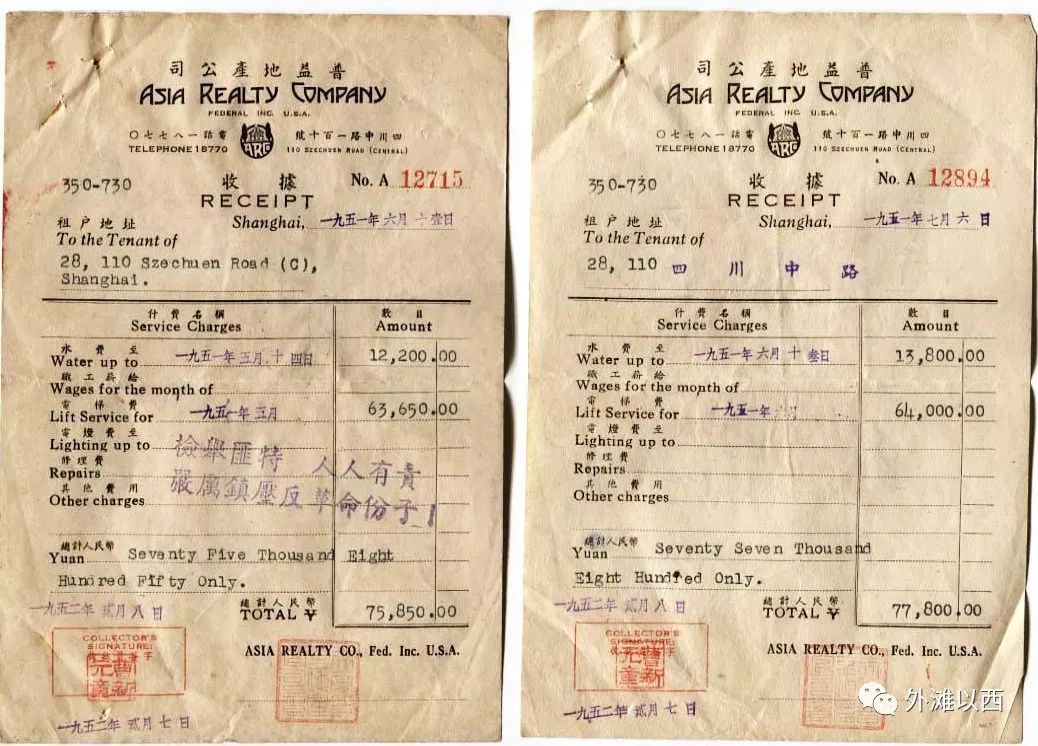 司公產地益普
ASIA REALTY COMPANY
FEDERAL INC. U.S.A.
〇七七八一話電
TELEPHONE 18770
ARC
號十百一路中川四
110 SZECHUEN ROAD (CENTRAL)
350-730
收據
RECEIPT
No. A 12715
租户地址
To the Tenant of
Shanghai, 一九五一年六月十壹日
28, 110 Szechuen Road (C),
Shanghai.
什費名稱
Service Charges
數目
Amount
水費至
Water up to 一九五一年五月十四日 12,200.00
職工薪給
Wages for the month of
電梯費
Lift Service for 一九五一年五月 63,650.00
電燈費至
Lighting up to
修理費
Repairs
其他費用
Other charges
檢舉匪特 人人有責
嚴厲鎮壓反革命份子!
總計人民幣
Yuan Seventy Five Thousand Eight
Hundred Fifty Only.
一九五二年貳月八日
總計人民幣
TOTAL ¥ 75,850.00
COLLECTOR'S
SIGNATURE:
ASIA REALTY CO., Fed. Inc. U.S.A.
一九五二年貳月七日
司公產地益普
ASIA REALTY COMPANY
FEDERAL INC. U.S.A.
〇七七八一話電
TELEPHONE 18770
ARC
號十百一路中川四
110 SZECHUEN ROAD (CENTRAL)
350-730
收據
RECEIPT
No. A 12894
租户地址
To the Tenant of
Shanghai, 一九五一年七月六日
28, 110 四川中路
什費名稱
Service Charges
數目
Amount
水費至
Water up to 一九五一年六月十叁日 13,800.00
職工薪給
Wages for the month of
電梯費
Lift Service for 一九五一年六月 64,000.00
電燈費至
Lighting up to
修理費
Repairs
其他費用
Other charges
總計人民幣
Yuan Seventy Seven Thousand
Eight Hundred Only.
一九五二年貳月八日
總計人民幣
TOTAL ¥ 77,800.00
COLLECTOR'S
SIGNATURE:
ASIA REALTY CO., Fed. Inc. U.S.A.
一九五二年貳月七日
外滩以西